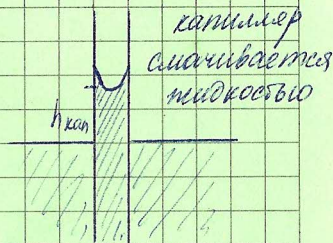 капилляр
смачивается
жидкостью
hкап